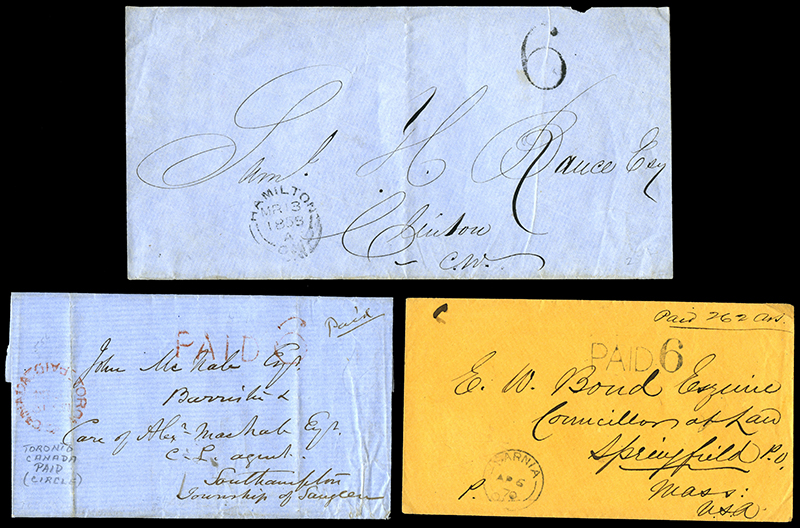 6
Saml. H. Rance Esq
HAMILTON
MR 13
1855
Clinton
C.W.
Paid
PAID 3
John McNab Esqr.
Barrister
Care of Alexr MacNab Esqr.
C. L. agent.
Southampton
Township of Saugeen
TORONTO
CANADA
PAID
(CIRCLE)
Paid 262
PAID 6
E. W. Bond Esquire
Councillor at Law
Springfield P.O.
Mass:
U.S.A.
SARNIA
AP 6
P.